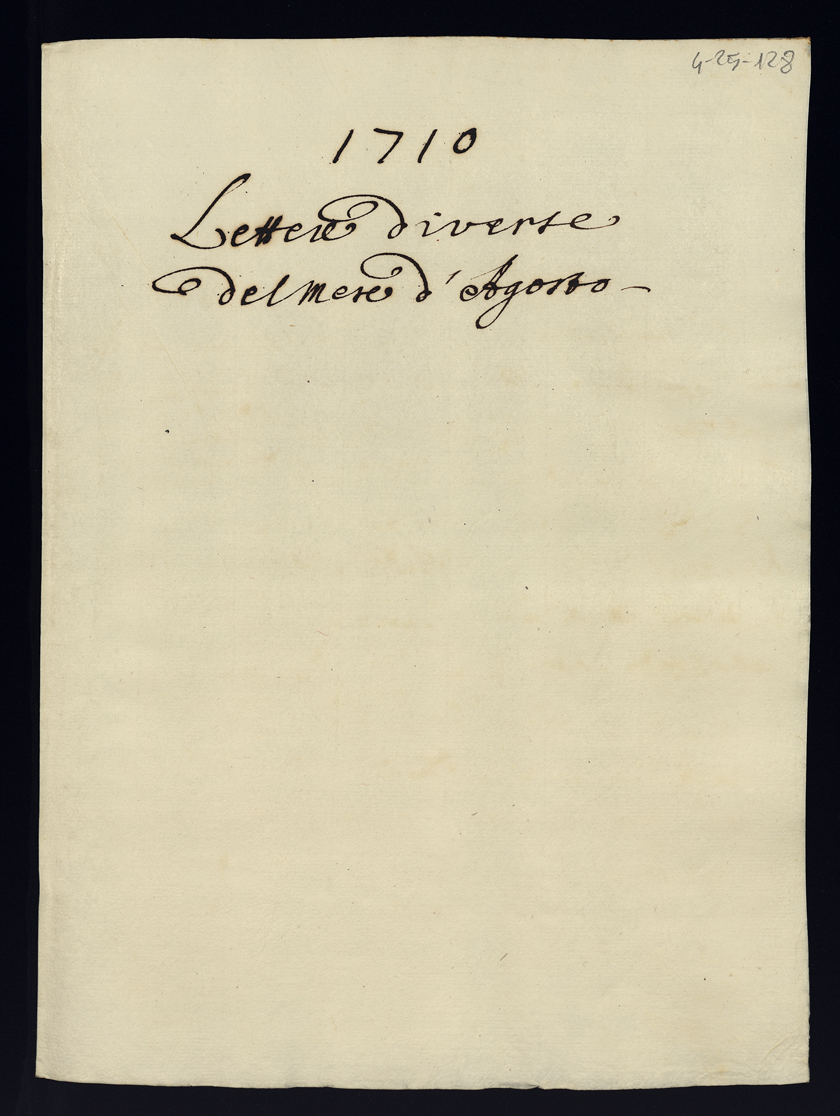 4-25-128
1710
Lettere diverse
del Mese d'Agosto -